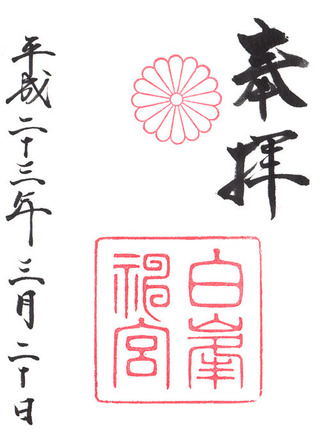 奉拝
白峯
神宮
平成二十三年三月二十日